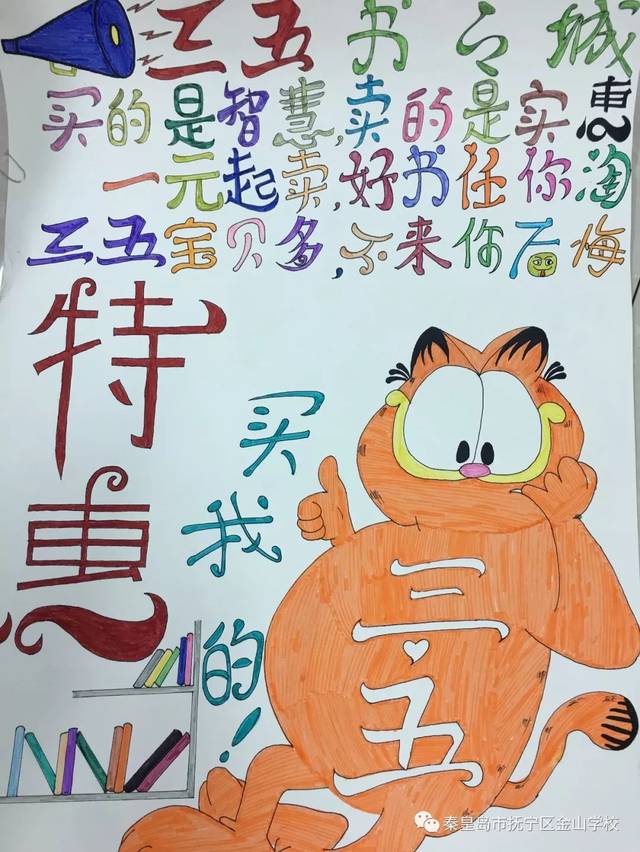 三五书之城
买的是智慧,卖的是实惠
一元起卖,好书任你淘
三五宝贝多,不来你后悔
特惠
买我的!
三五
秦皇岛市抚宁区金山学校